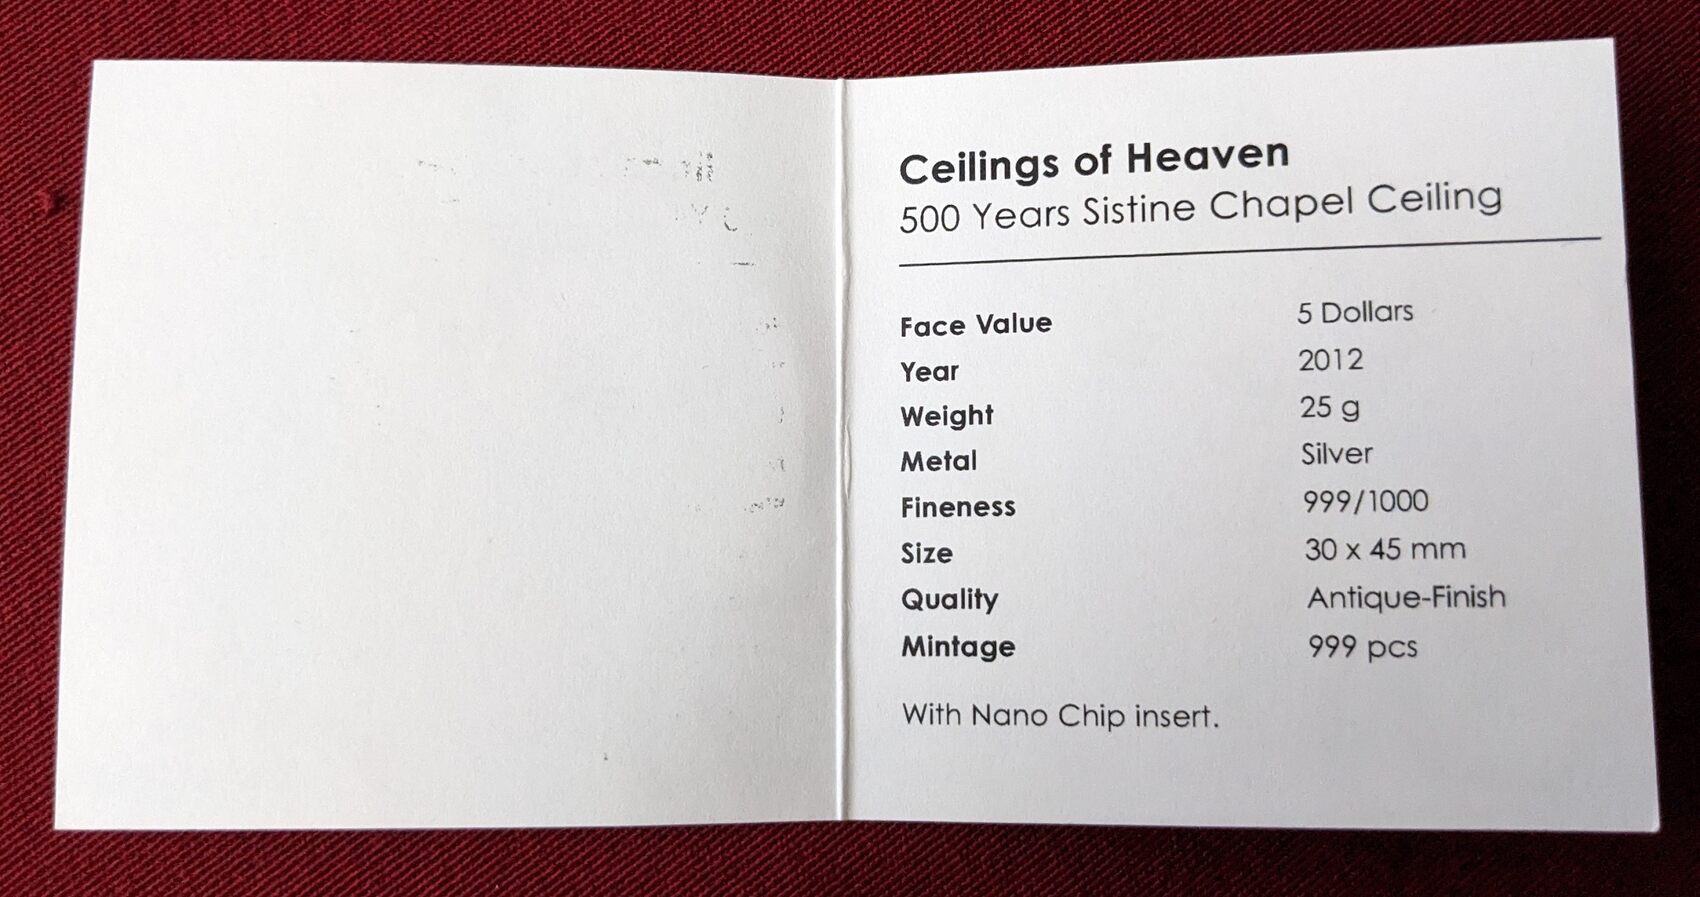 Ceilings of Heaven
500 Years Sistine Chapel Ceiling
Face Value 5 Dollars
Year 2012
Weight 25 g
Metal Silver
Fineness 999/1000
Size 30 x 45 mm
Quality Antique-Finish
Mintage 999 pcs
With Nano Chip insert.